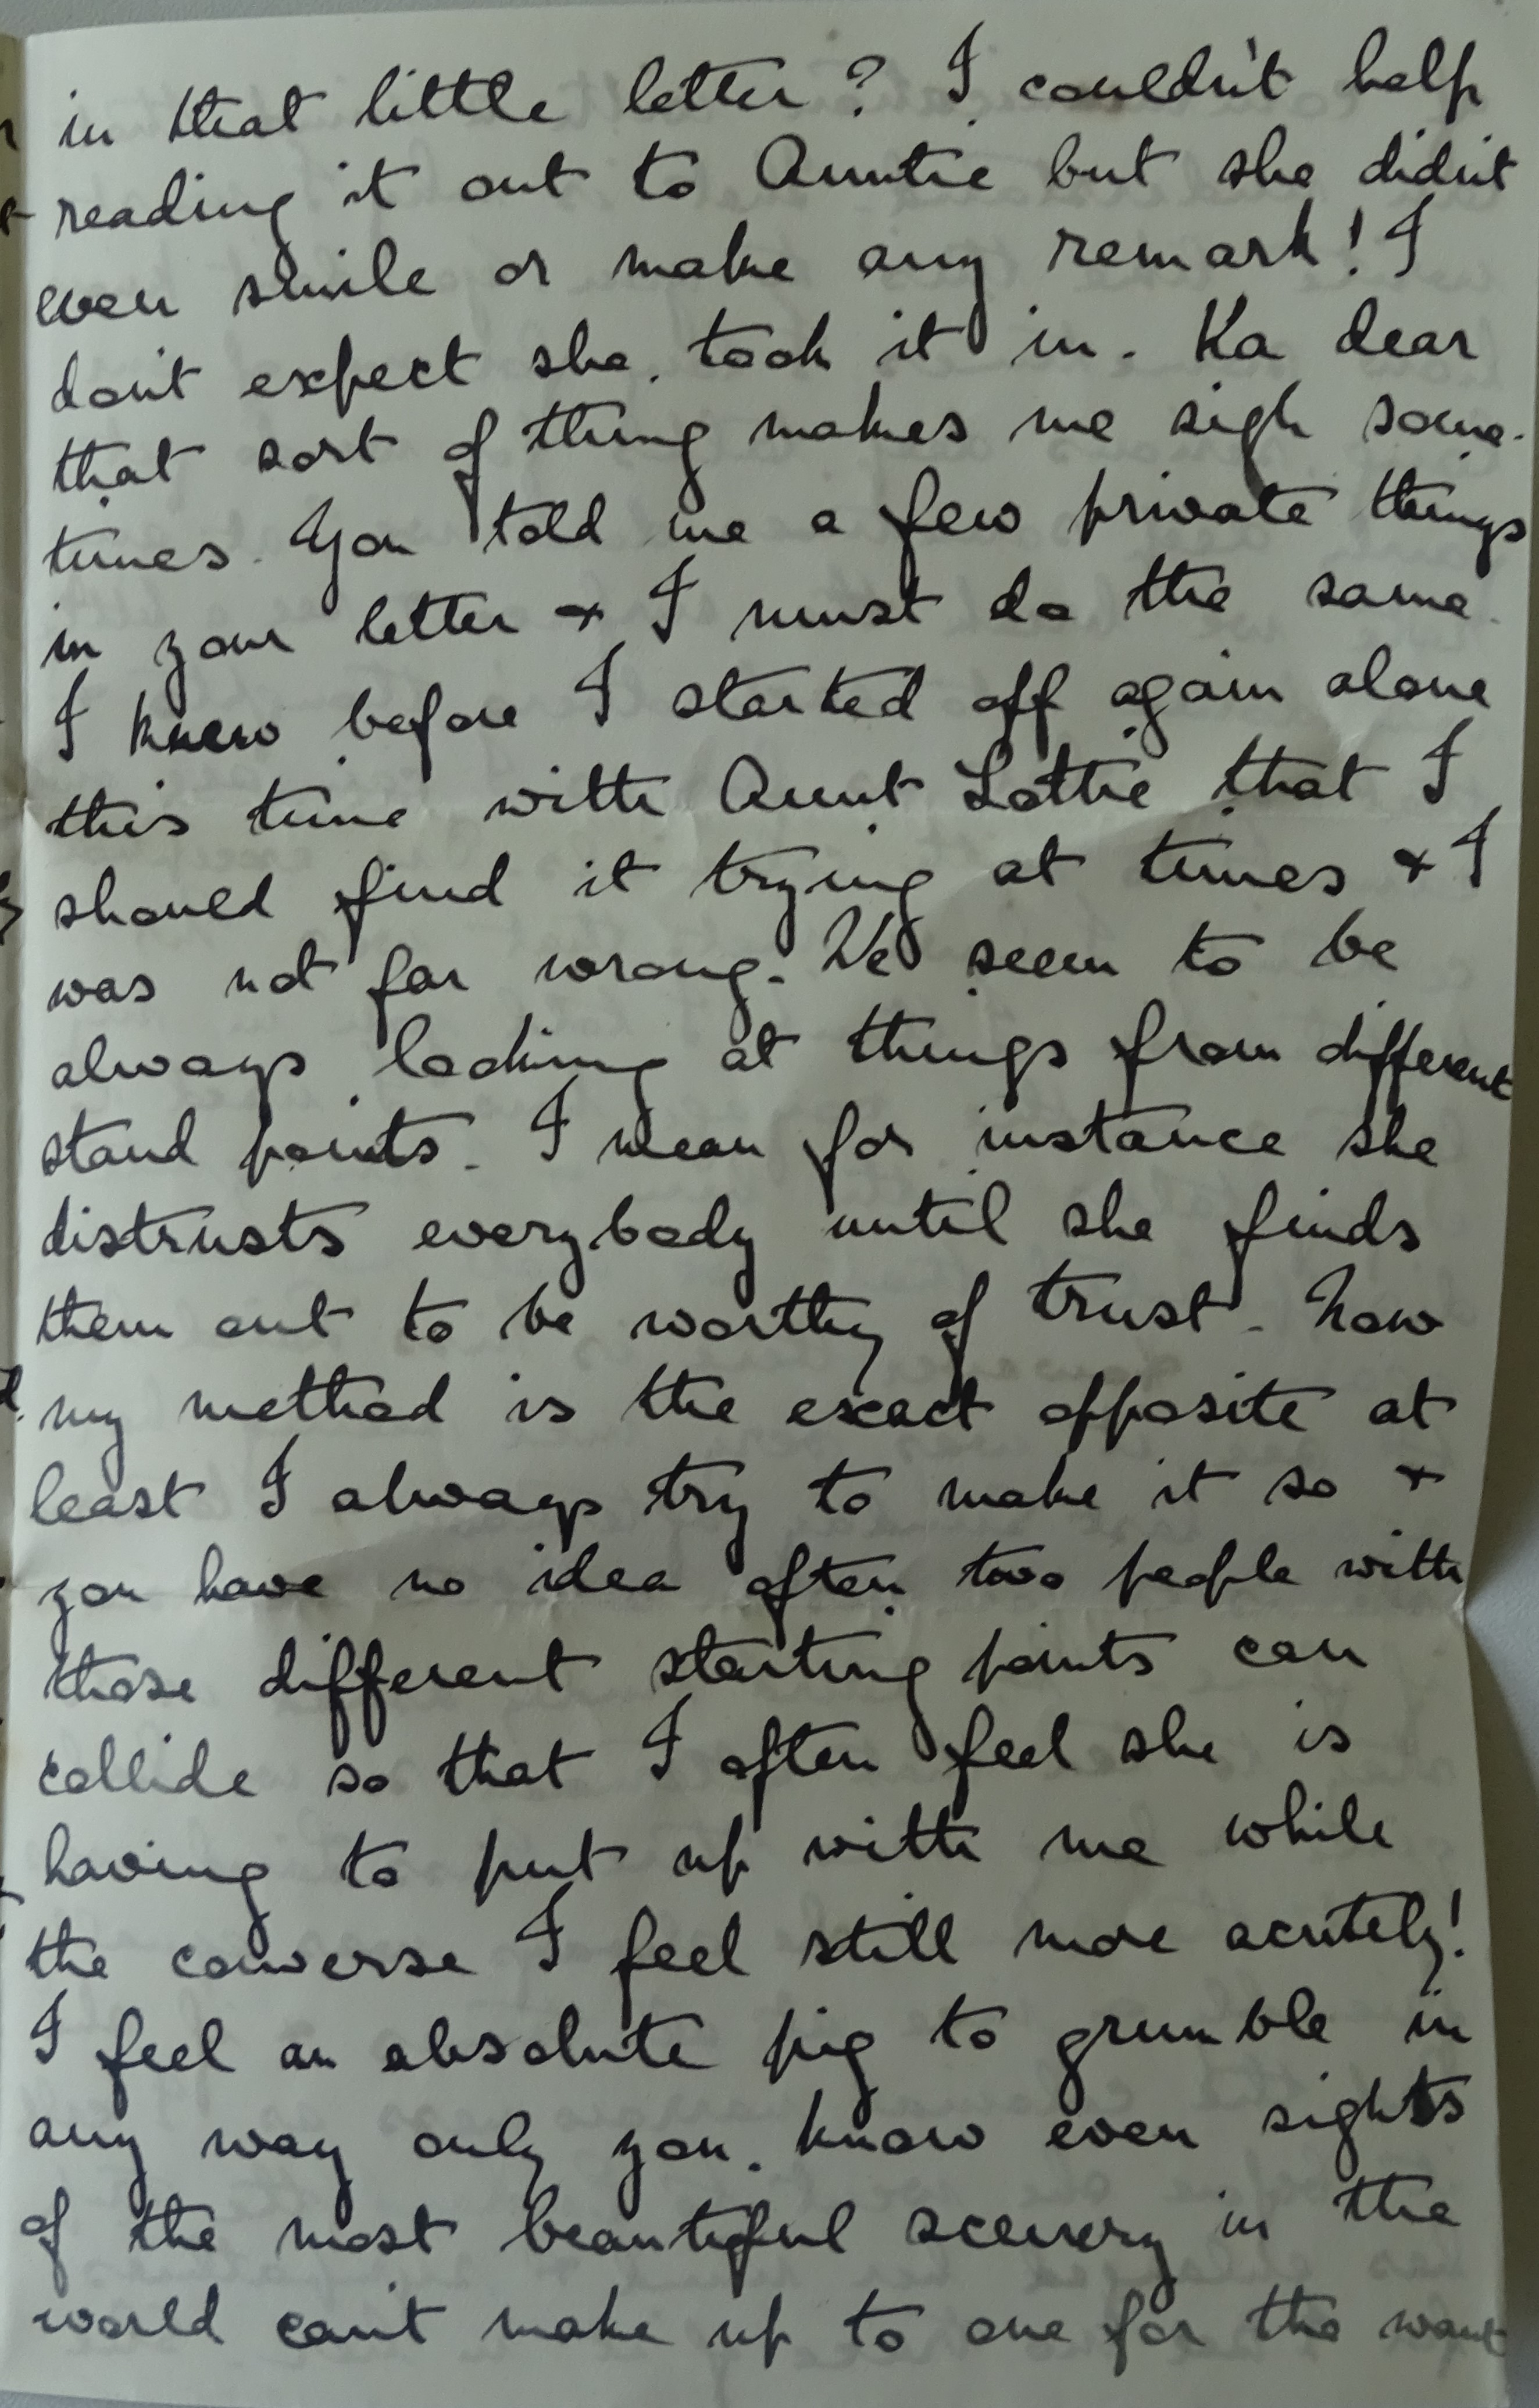 in that little letter? I couldn't help
reading it out to Auntie but she didn't
even smile or make any remark! I
don't expect she took it in. Ka dear
that sort of thing makes me sigh some-
times. You told me a few private things
in your letter & I must do the same.
I knew before I started off again alone
this time with Aunt Lottie that I
should find it trying at times & I
was not far wrong. We seem to be
always looking at things from different
stand points. I mean for instance she
distrusts everybody until she finds
them out to be worthy of trust. Now
my method is the exact opposite at
least I always try to make it so &
you have no idea often two people with
those different starting points can
collide so that I often feel she is
having to put up with me while
the converse I feel still more acutely!
I feel an absolute pig to grumble in
any way only you know even sights
of the most beautiful scenery in the
world can't make up to one for the want